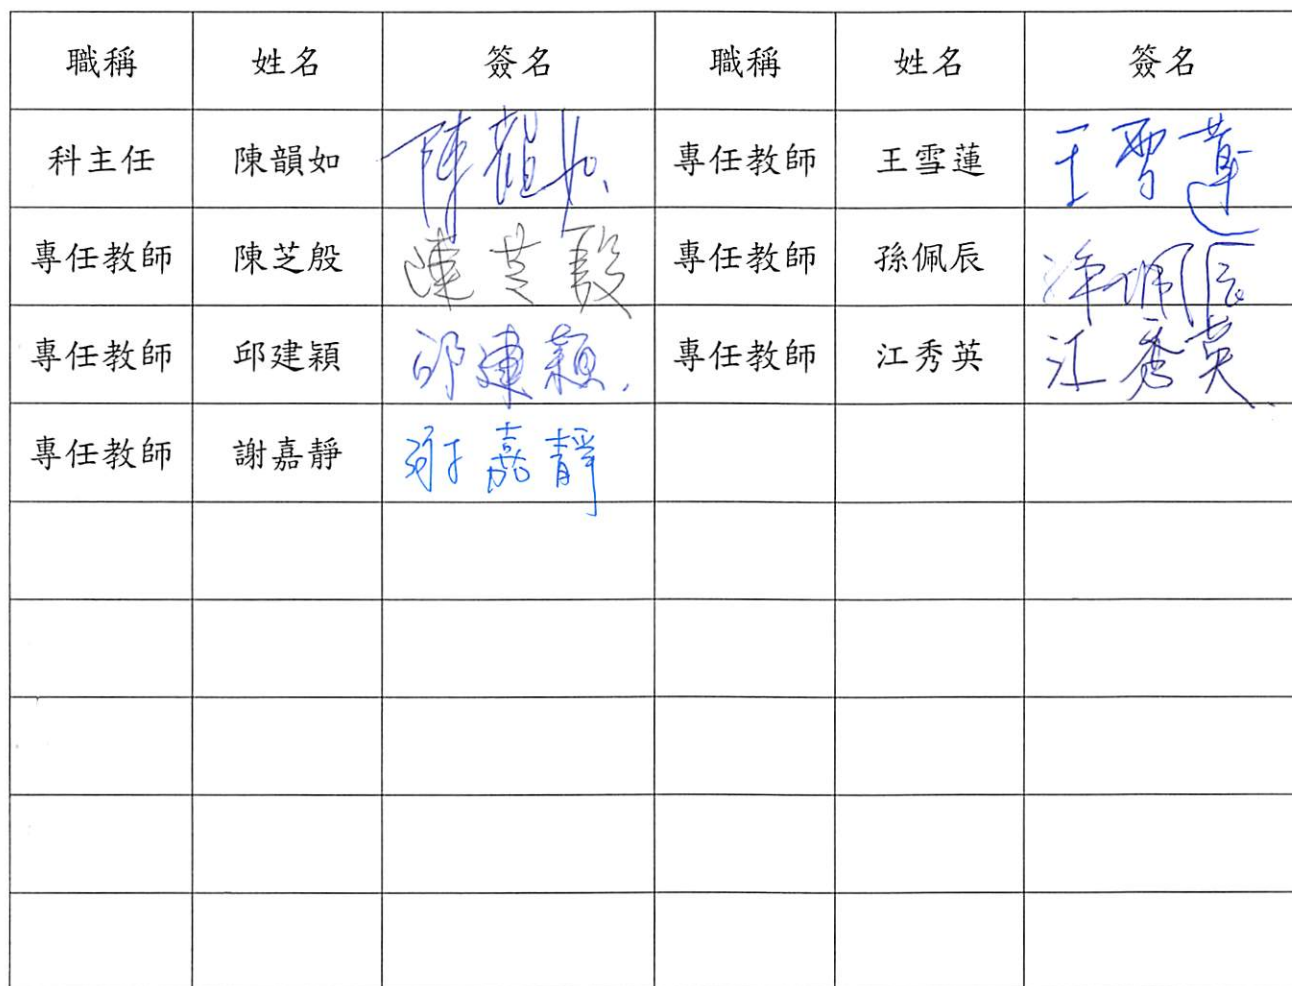 職稱 姓名 簽名 職稱 姓名 簽名
科主任 陳韻如 陳韻如 專任教師 王雪蓮 王雪蓮
專任教師 陳芝殷 陳芝殷 專任教師 孫佩辰 孫佩辰
專任教師 邱建穎 邱建穎 專任教師 江秀英 江秀英
專任教師 謝嘉靜 謝嘉靜